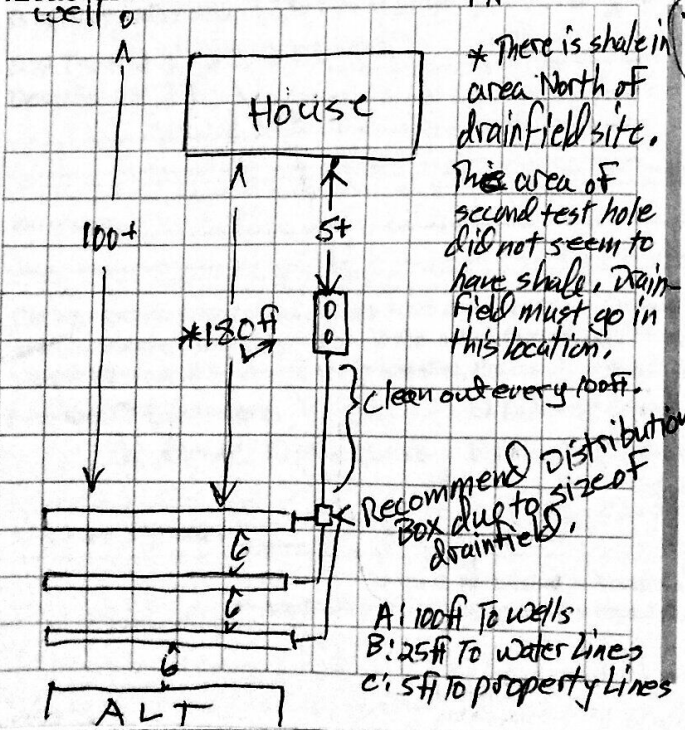 well
House
* There is shale in
area North of
drainfield site.
This area of
second test hole
did not seem to
have shale. Drain-
field must go in
this location.
100+
5+
*180ft
clean out every 100ft.
Recommend Distribution
Box due to size of
drainfield.
6
6
6
A: 100ft To wells
B: 25ft To water Lines
C: 5ft To property Lines
ALT